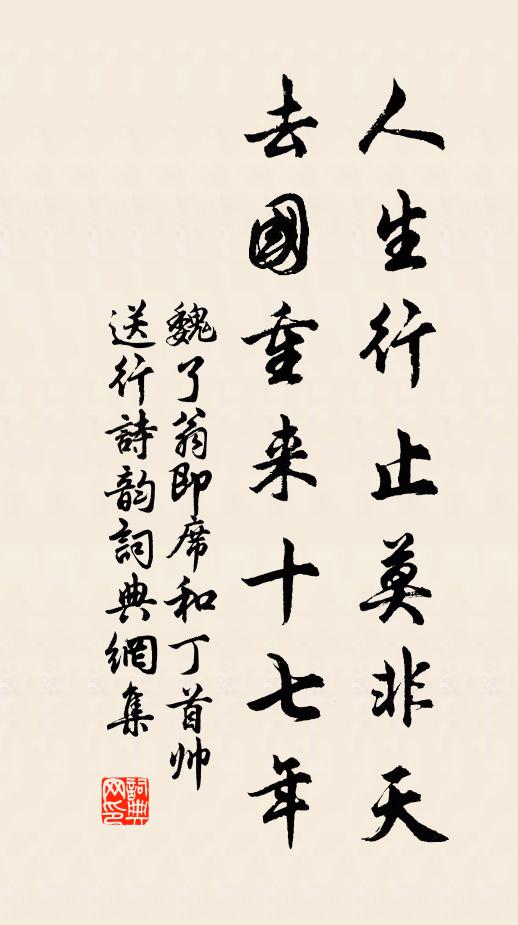 人生行止莫非天
去國重来十七年
魏了翁即席和丁首帅
送行詩韵詞典網集
詞典
网印